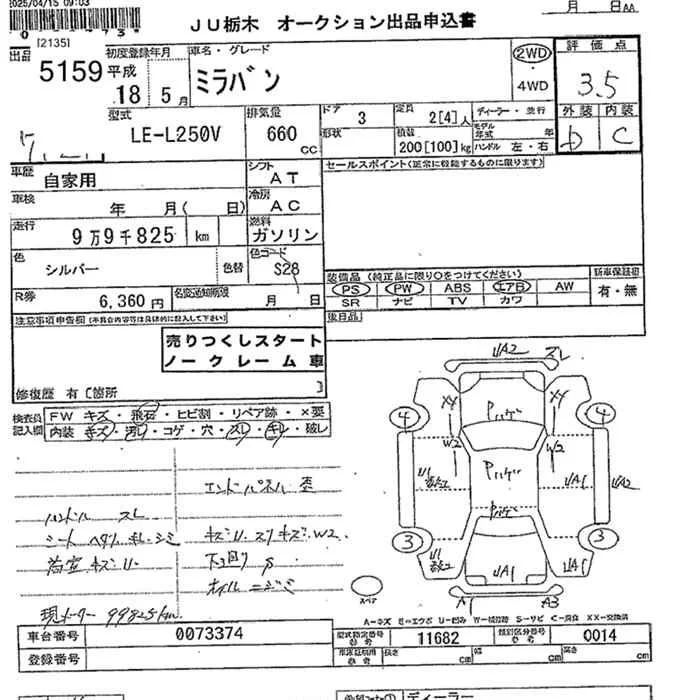 2025/04/15 09:03
月 日AA
[2135]
JU栃木 オークション出品申込書
出品
5159
初度登録年月
平成
18 5月
車名・グレード
ミラバン
2WD
・
4WD
評価点
3.5
外装 内装
D C
型式
LE-L250V
排気量
660
cc
ドア
3
形状
定員
2[4]人
積載
200[100]kg
ディーラー・並行
モデル年式 年
ハンドル 左・右
車歴
自家用
シフト
AT
セールスポイント(正常に機能するものに限ります)
車検
年 月( 日)
冷房
AC
走行
9万9千825 km
燃料
ガソリン
色
シルバー
色替
色コード
S28
装備品(純正品に限り○をつけてください)
PS PW ABS エアB AW
SR ナビ TV カワ
新車保証書
有・無
R券
6,360円
名変通知期限
月 日
後日品
注意事項申告欄
売りつくしスタート
ノークレーム車
修復歴 有[箇所 ]
検査員
記入欄
FW キズ・飛石・ヒビ割・リペア跡・×要
内装 キズ・汚レ・コゲ・穴・スレ・キレ・破レ
エンドパネル 歪
ハンドル スレ
シート ヘタリ.キレ.シミ
キズU.スリキズ.W2
荷室.キズU
下回りS
オイルニジミ
現メーター 99825km
UA2 スレ
XX XX
Pハゲ
4 4
W2 W2
U1 Pハゲ UA1
Pハゲ
3 3
U1 UA1 UA1
A1 A3
スペア
A-キズ E-エクボ U-凹み W-補修跡 S-サビ C-腐食 XX-交換済
車台番号
0073374
型式指定番号
参考
11682
類別区分番号
参考
0014
登録番号
車庫証明用
参考
長さ cm 幅 cm 高さ cm
ディーラー